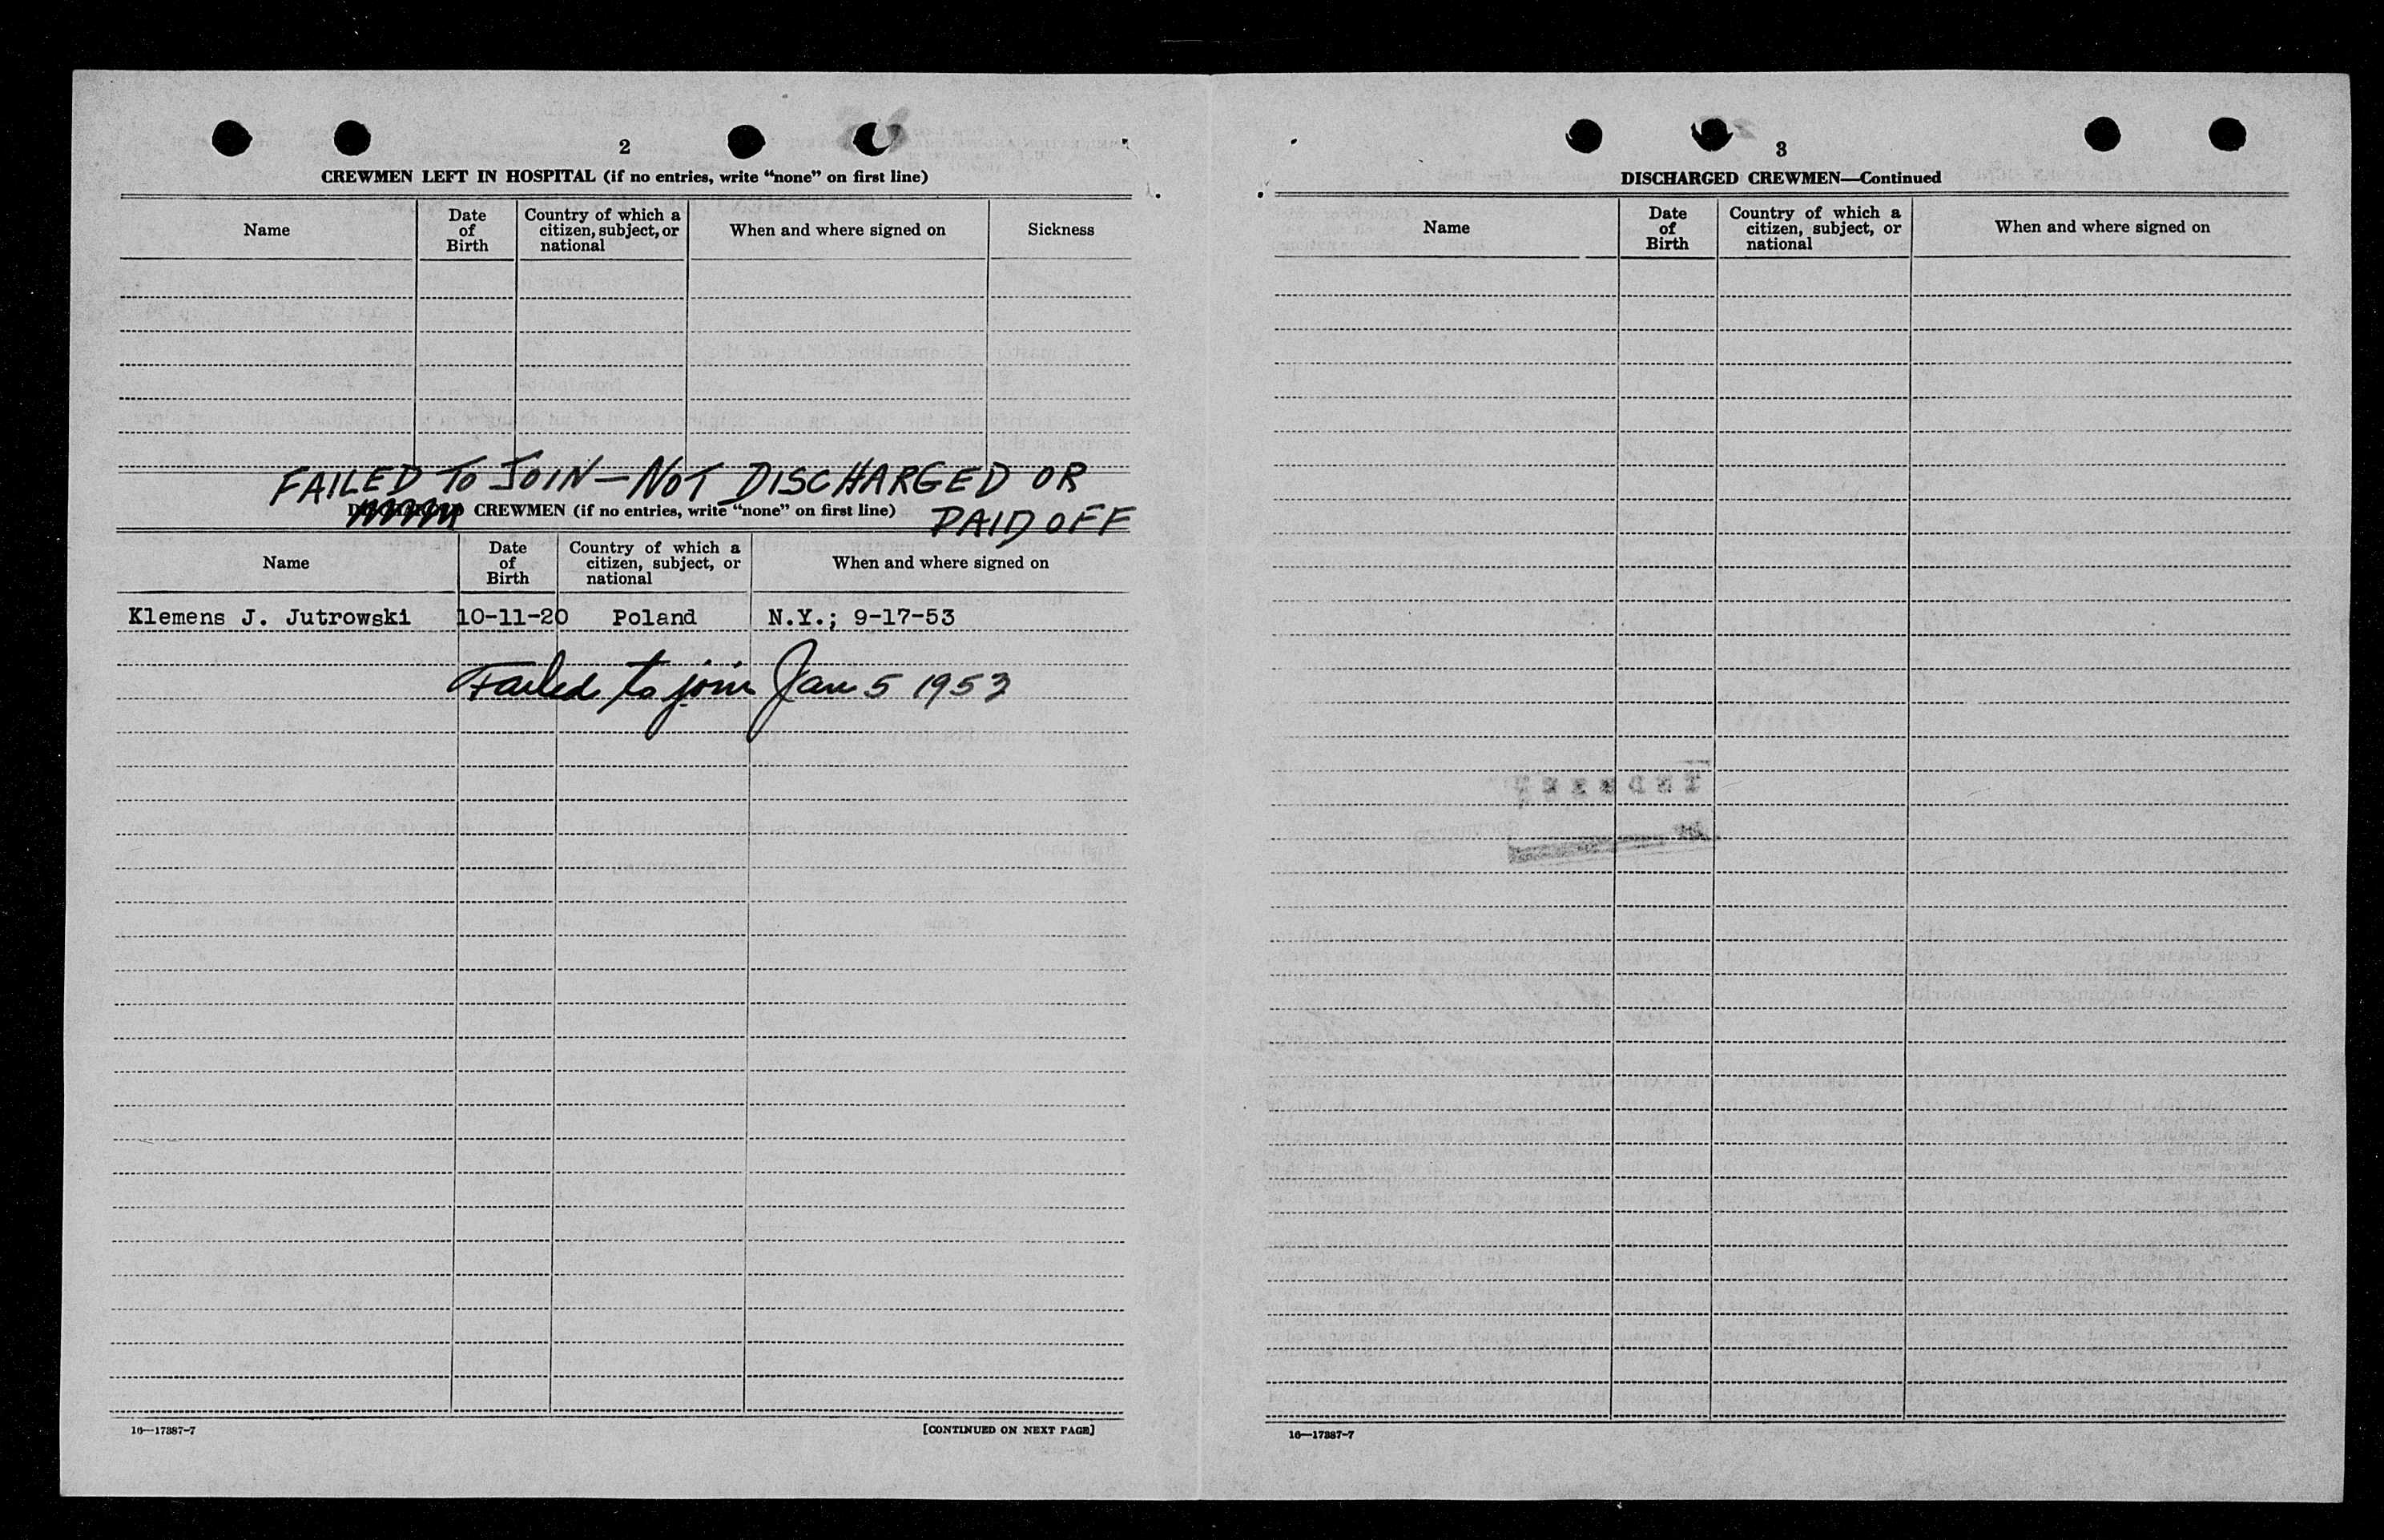 2
CREWMEN LEFT IN HOSPITAL (if no entries, write “none” on first line)
Name
Date of Birth
Country of which a citizen, subject, or national
When and where signed on
Sickness
FAILED TO JOIN — NOT DISCHARGED OR
PAID OFF
CREWMEN (if no entries, write “none” on first line)
Name
Date of Birth
Country of which a citizen, subject, or national
When and where signed on
Klemens J. Jutrowski 10-11-20 Poland N.Y.; 9-17-53
Failed to join Jan 5 1953
16—17387-7
[CONTINUED ON NEXT PAGE]
3
DISCHARGED CREWMEN—Continued
Name
Date of Birth
Country of which a citizen, subject, or national
When and where signed on
16—17387-7